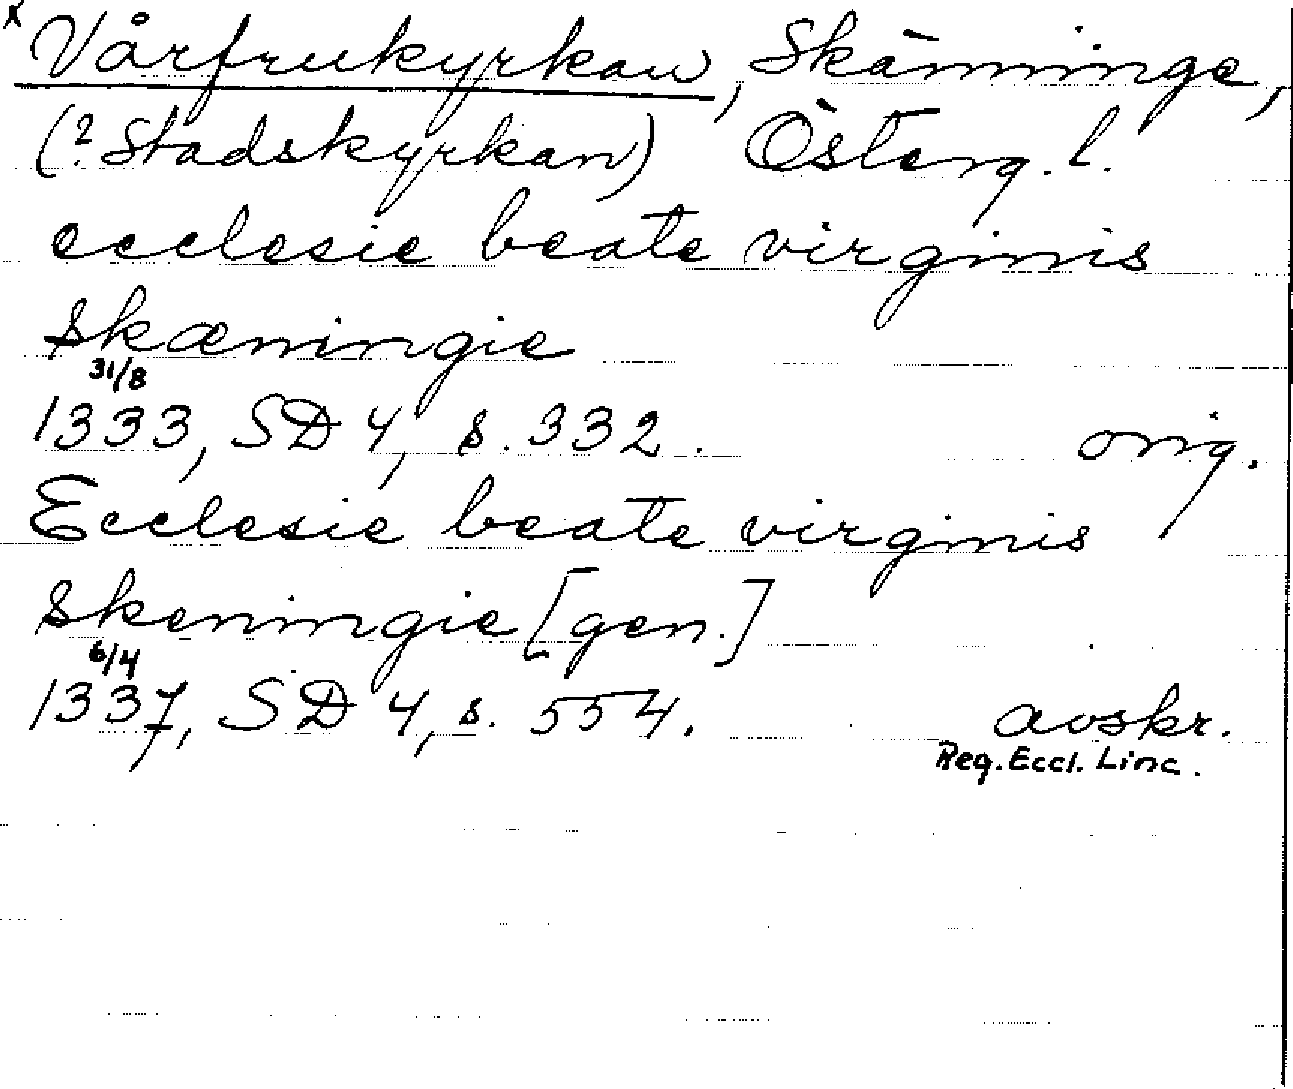 x Vårfrukyrkan, Skänninge,
(? Stadskyrkan) Österg. l.
ecclesie beate virginis
skæningie
31/8
1333, SD 4, s. 332. orig.
Ecclesie beate virginis
skeningie [gen.]
6/4
1337, SD 4, s. 554. avskr.
Reg. Eccl. Linc.